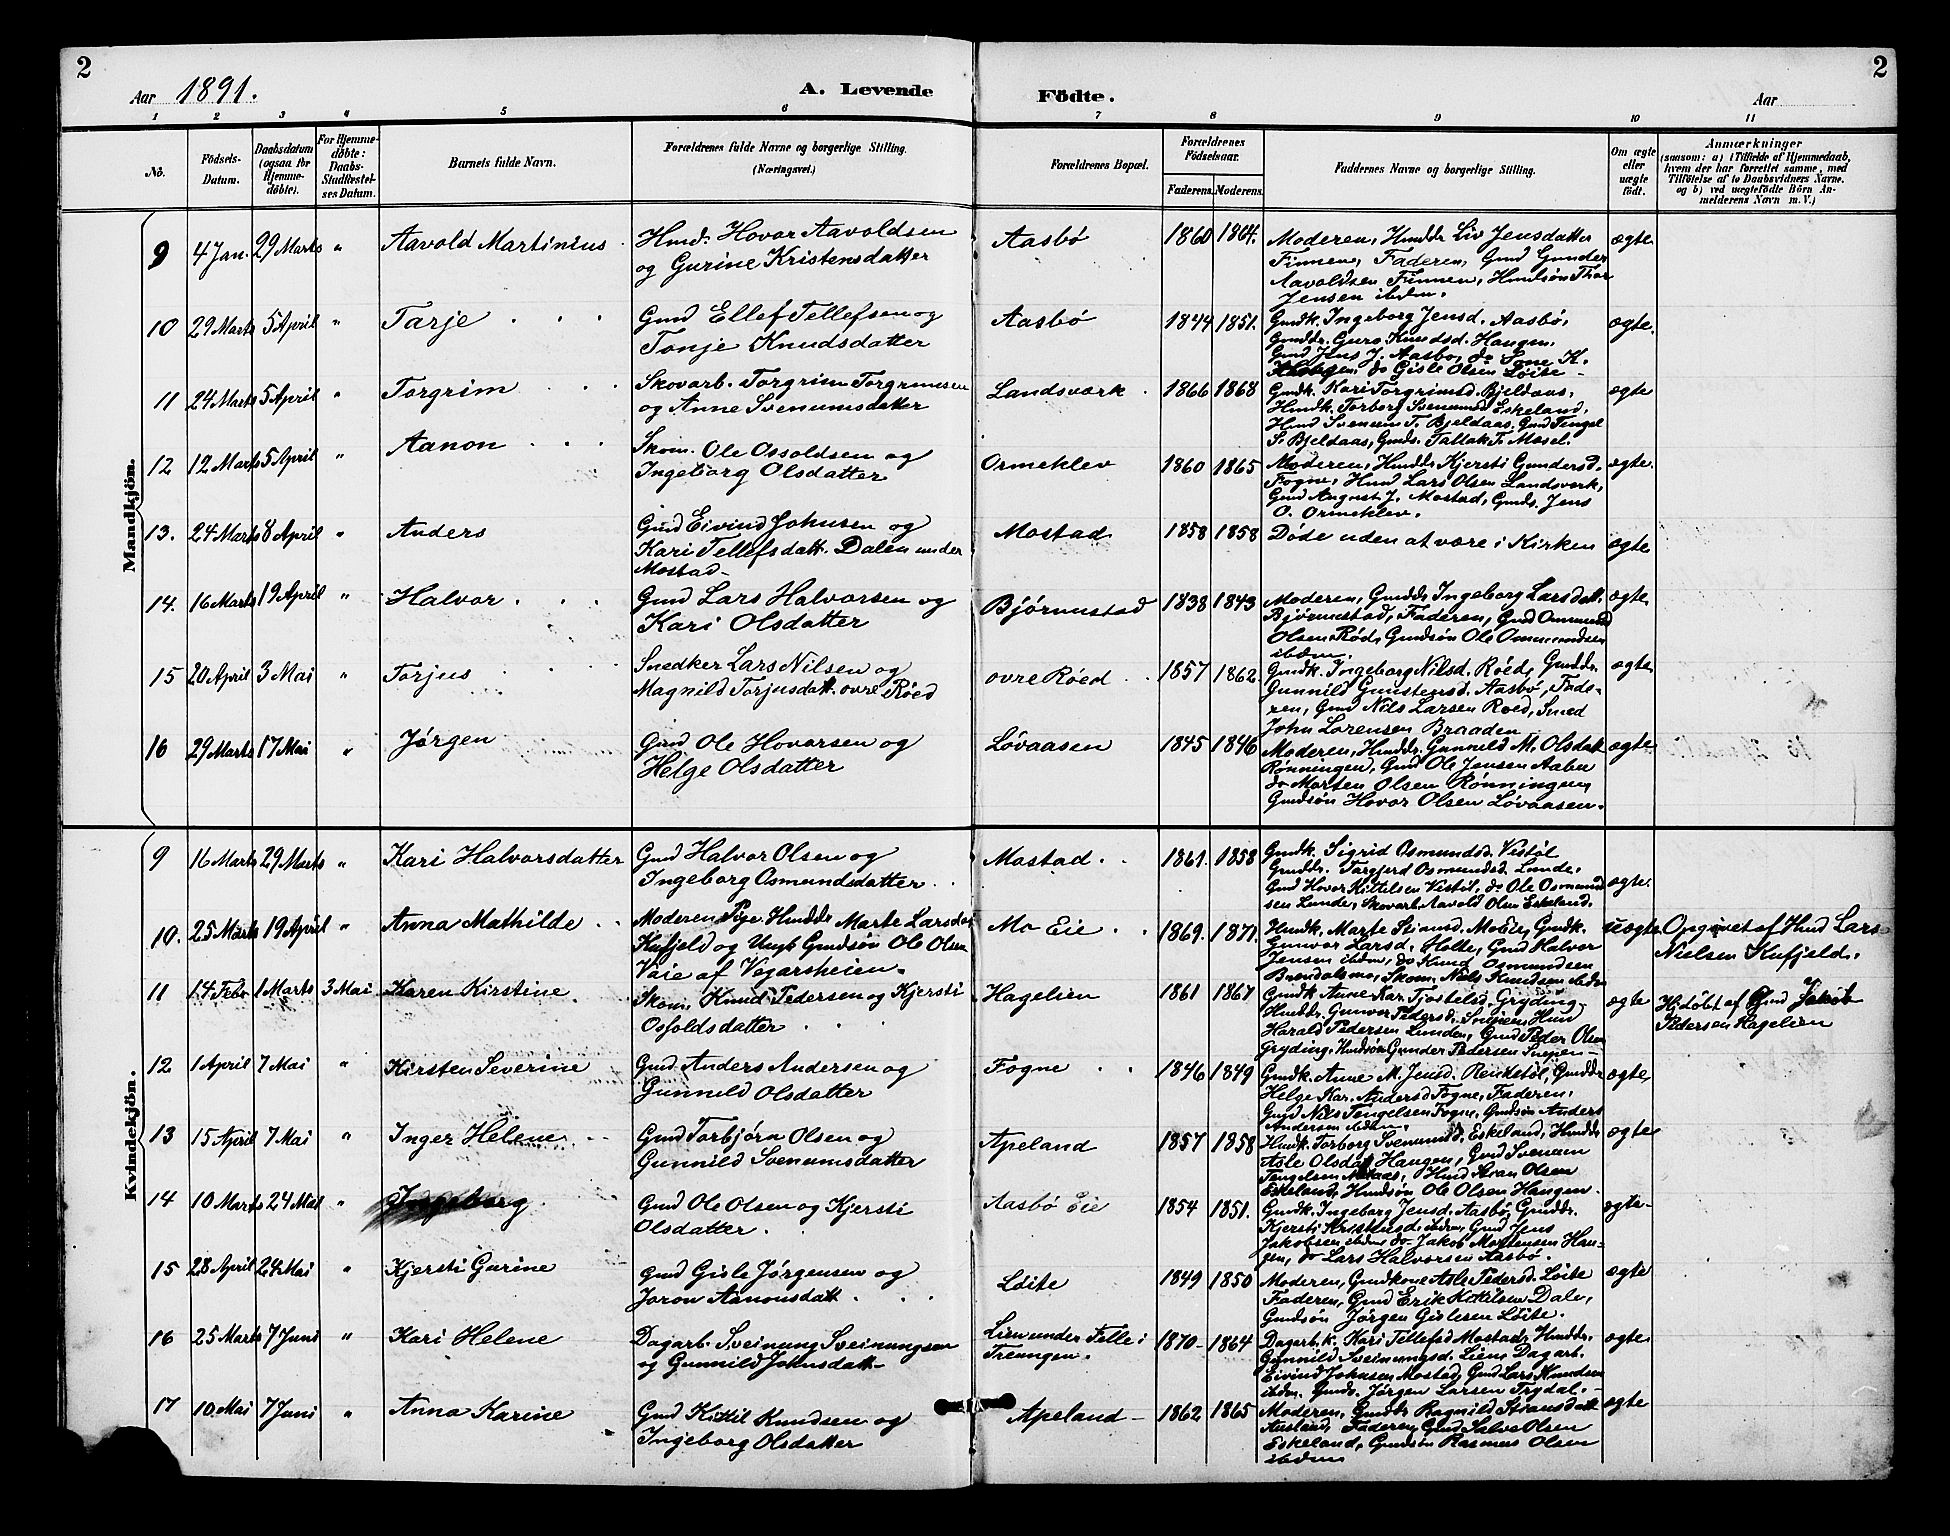 2
Aar 1891.
A. Levende Födte.
Aar
2
1 2 3 4 5 6 7 8 9 10 11
No.
Födsels-Datum.
Daabsdatum (ogsaa for Hjemmedöbte).
For Hjemmedöbte: Daabs-Stadfæstelses Datum.
Barnets fulde Navn.
Forældrenes fulde Navne og borgerlige Stilling. (Næringsvei.)
Forældrenes Bopæl.
Forældrenes Födselsaar.
Faderens. Moderens.
Faddernes Navne og borgerlige Stilling.
Om ægte eller uægte födt.
Anmærkninger
(saasom: a) i Tilfælde af Hjemmedaab, hvem der har forrettet samme, med Tilföielse af to Daabsvidners Navne. og b) ved uægtefödte Börn Anmelderens Navn m. V.)
Mandkjön.
9 4 Jan. 29 Marts " Aavold Martinius Hmd. Hovor Aavoldsen
og Gurine Kristensdatter
Aasbø 1860 1864. Moderen, Hmddr Liv Jensdatter
Finnene, Faderen, Gmd Gunder
Aavoldsen Finnen, Hmdsøn Thor
Jensen ibdm.
ægte
10 29 Marts 5 April " Tarje Gmd Ellef Tellefsen og
Tonje Knudsdatter
Aasbø 1844 1851. Gmdk. Ingeborg Jensd. Aasbø,
Gmddr. Guro Knudsd. Haugen,
Gmd Jens J. Aasbø, do Sone K.
Haugen, do Gisle Olsen Løite
ægte.
11 24 Marts 5 April " Torgrim Skovarb. Torgrim Torgrimsen
og Anne Svenumsdatter
Landsværk 1866 1868 Gmdk. Kari Torgrimsd. Bjeldaas,
Hmdk. Torborg Svenumsd Eskeland,
Hmd Svenum T. Bjeldaas, Gmd Tengel
S. Bjeldaas, Gmds. Tallak T. Mæsel.
ægte
12 12 Marts 5 April " Aanon Skom. Ole Osvoldsen og
Ingeborg Olsdatter
Ormeklev 1860 1865 Moderen, Hmddr Kjersti Gundersd.
Fogne, Hmd Lars Olsen Landsverk,
Gmd August J. Mostad, Gmds. Jens
O. Ormeklev.
ægte.
13. 24 Marts 8 April " Anders Gmd Eivind Johnsen og
Kari Tellefsdatt. Dalen under
Mostad
Mostad 1858 1858 Døde uden at være i Kirken ægte
14. 16 Marts 19 April " Halvor Gmd Lars Halvorsen og
Kari Olsdatter
Bjørnustad 1838 1843 Moderen, Gmddr Ingeborg Larsdatt.
Bjørnustad, Faderen, Gmd Ommund
Olsen Rød, Gmdsøn Ole Ommundsen
ibdm.
ægte
15 20 April 3 Mai " Torjus Snedker Lars Nilsen og
Magnild Torjusdatt. ovre Røed
ovre Røed 1857 1862. Gmdk. Ingeborg Nilsd. Roed, Gmddr.
Gunnild Gunstensd. Aasbø, Fade-
ren, Gmd Nils Larsen Roed, Smed
John Lorensen Braaden
ægte
16 29 Marts 17 Mai " Jørgen Gmd Ole Hovorsen og
Helge Olsdatter
Løvaasen 1845 1846 Moderen, Hmddr. Gunnild M. Olsdatt
Rønningen, Gmd Ole Jensen Aabu
do Morten Olsen Rønningen,
Gmdsøn Hovor Olsen Løvaasen.
ægte
Kvindekjön.
9 16 Marts 29 Marts " Kari Halvorsdatter Gmd Halvor Olsen og
Ingeborg Osmundsdatter
Mostad 1861. 1858 Gmdk. Sigrid Osmundsd. Vestøl
Gmddr. Targjerd Osmundsd. Lunde.
Gmd Hovor Kittelsen Vestøl, do Ole Osmund
sen Lunde, Skovarb. Aavold Olsen Eskeland.
ægte.
10. 25 Marts 19 April " Anna Mathilde Moderen Pige Hmddr Marte Larsdat
Kufjeld og Ungk Gmdsøn Ole Olsen
Vaie af Vegarsheien.
Mo Eie 1869. 1871. Hmdk. Marte Sirand. Mo Eie, Gmdk.
Gunvor Larsd. Holte, Gmd Halvor
Jensen ibdm, do Knud Osmundsen
Brendalsmo, Skom. Niels Knudsen ibdm
uægte Opgivet af Hmd Lars
Nielsen Kufjeld.
11 14 Febr 1 Marts 3 Mai Karen Kirstine Skom. Knud Pedersen og Kjersti
Osfoldsdatter
Hagelien 1861 1867 Gmdk Anne Kar. Tjostelsd. Gryding
Hmddr. Gunvor Pedersd. Snepen, Hmd
Harald Pedersen Lunden, Gmd Peder Olsen
Gryding. Hmdsøn Gunder Pedersen Snepen
ægte Hj.døbt af Gmd Jakob
Pedersen Hagelien
12 1 April 7 Mai " Kirsten Severine Gmd Anders Andersen og
Gunnild Olsdatter
Fogne 1846 1849 Gmdk. Anne M. Jensd. Gmddr
Helge Kar. Andersd Fogne, Faderen,
Gmd Nils Tengelsen Fogne, Gmdsøn Anders
Andersen ibdm.
ægte
13 15 April 7 Mai " Inger Helene Gmd Torbjørn Olsen og
Gunnild Svenumsdatter
Apeland 1857 1858 Hmdk. Torborg Svenumsd. Eskeland, Hmddr
Asle Olsdatt Haugen, Gmd Svenum
Tengelsen Hmd Olsen
Eskeland, Hmdsøn Ole Olsen Haugen.
ægte
14 10 Marts 24 Mai " Ingeborg Gmd Ole Olsen og Kjersti
Olsdatter.
Aasbø Eie 1854 1851. Gmdk. Ingeborg Jensd. Aasbø, Gmddr.
Kjersti ibdm, Gmd Jens
Jakobsen ibdm do Jakob Mortensen Hau-
gen, do Lars Halvorsen Aasbø.
ægte
15 28 April 24 Mai " Kjersti Gurine Gmd Gisle Jørgensen og
Joron Aanonsdatt.
Løite 1849 1850 Moderen, Gmdkone Asle Pedersd. Løite
Faderen, Gmd Erik Kittilsen Dale,
Gmdsøn Jørgen Gislesen Løite.
ægte
16 25 Marts 7 Juni " Kari Helene Dagarb. Sveinung Sveinungsen
og Gunnild Johnsdatt
Lien under Felle i
Treungen.
1870 1864 Dagarb.k. Kari Tellefsd Mostad, Hmddr.
Gunnild Sveinungsd. Liene Dagarb.
Eivind Johnsen Mostad, Gmd Lars Knudsen
ibdm. Gmds. Jørgen Larsen Trydal.
ægte
17 10. Mai 7 Juni " Anna Karine Gmd Kittil Knudsen og
Ingeborg Olsdatter
Apeland 1862 1865 Moderen, Gmddr Ragnild
Faderen, Gmd Salve Olsen
Eskeland, Gmdsøn Rasmus Olsen
ibdm
ægte